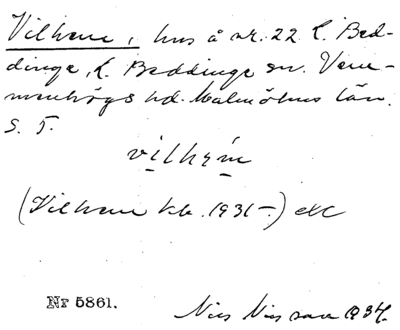 Vilhem, hus å nr. 22 L. Bed-
dinge, L. Beddinge sn. Vem-
menhögs hd. Malmöhus län.
S. T.
vilhæm
(Vilhem kb. 1931-.) etc
Nr 5861.
Nils Nilsson 1934.